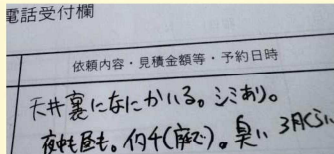 電話受付欄
依頼内容・見積金額等・予約日時
天井裏になにかいる。シミあり。
夜中も昼も。イタチ(庭で)。臭い 3月くらい